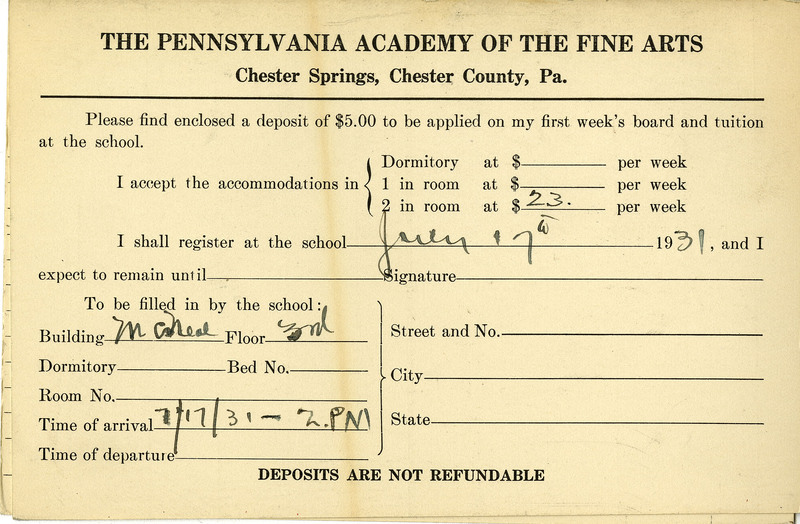 THE PENNSYLVANIA ACADEMY OF THE FINE ARTS
Chester Springs, Chester County, Pa.
Please find enclosed a deposit of $5.00 to be applied on my first week's board and tuition
at the school.
I accept the accommodations in
Dormitory at $ per week
1 in room at $ per week
2 in room at $ 23. per week
I shall register at the school July 17th 1931, and I
expect to remain until Signature
To be filled in by the school:
Building McNeal Floor 3rd
Dormitory Bed No.
Room No.
Time of arrival 7/17/31 - 2.PM
Time of departure
Street and No.
City
State
DEPOSITS ARE NOT REFUNDABLE